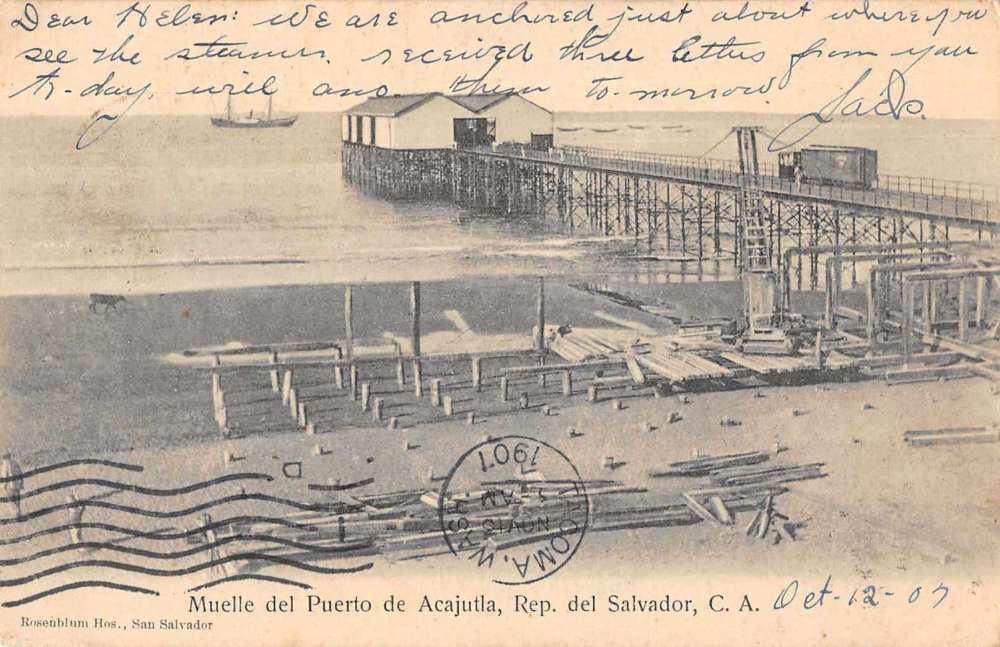 Dear Helen: We are anchored just about where you
see the steamer. received three letters from you
to-day, will ans them to-morrow.
Jack.
TACOMA, WASH.
NOV 13
AM
1907
D
Muelle del Puerto de Acajutla, Rep. del Salvador, C. A. Oct-12-07
Rosenblum Hos., San Salvador